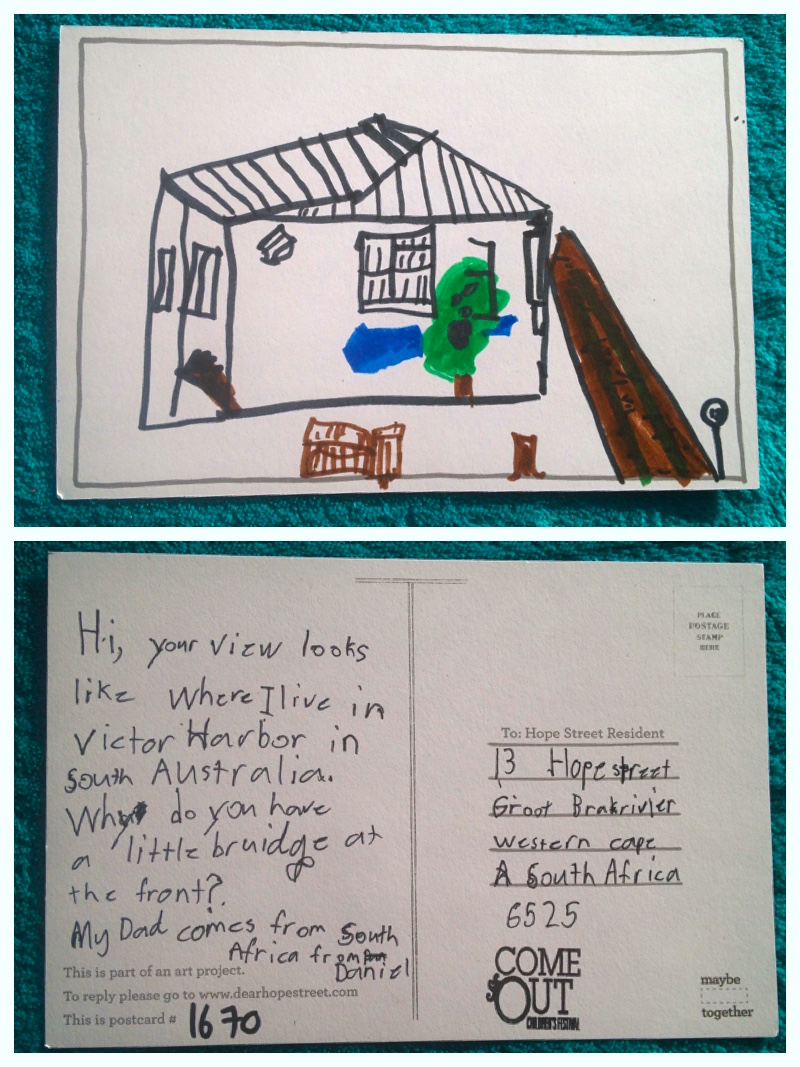 Hi, your view looks
like where I live in
Victor Harbor in
South Australia.
Why do you have
a little bruidge at
the front?
My Dad comes from South
Africa from
Daniel
This is part of an art project.
To reply please go to www.dearhopestreet.com
This is postcard # 1670
PLACE
POSTAGE
STAMP
HERE
To: Hope Street Resident
13 Hope street
Groot Brakrivier
western cape
A South Africa
6525
COME
OUT
CHILDREN'S FESTIVAL
maybe
together